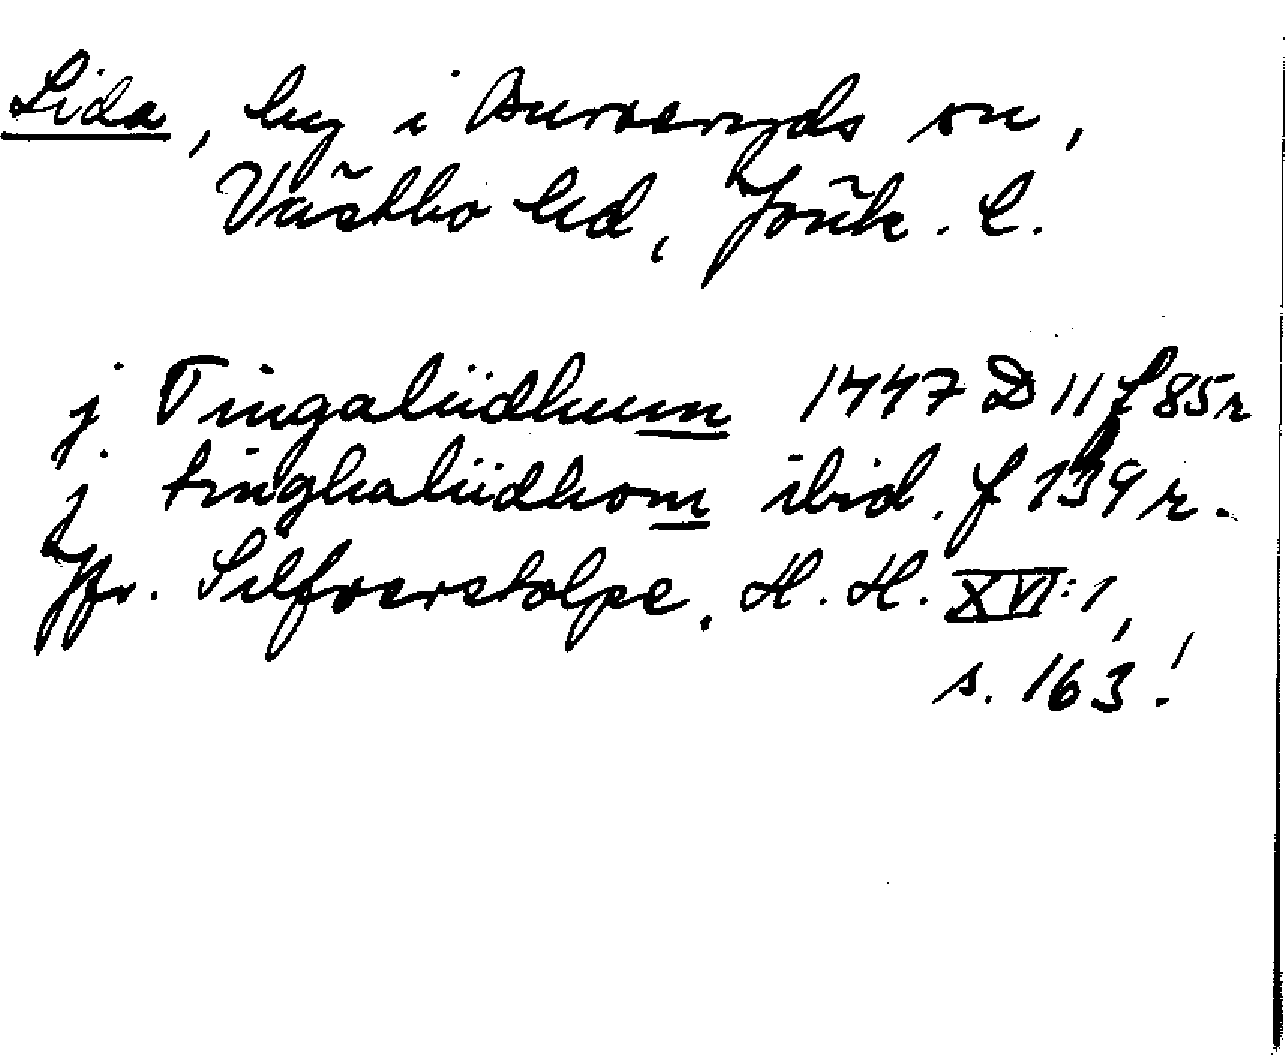 Lida, by i Burseryds sn,
Västbo hd, Jönk. l.
j Tingaliidhum 1447 D 11 f 85r
j tinghaliidhom ibid. f 139 r.
Jfr. Silfverstolpe, H. H. XVI:1,
s. 163!